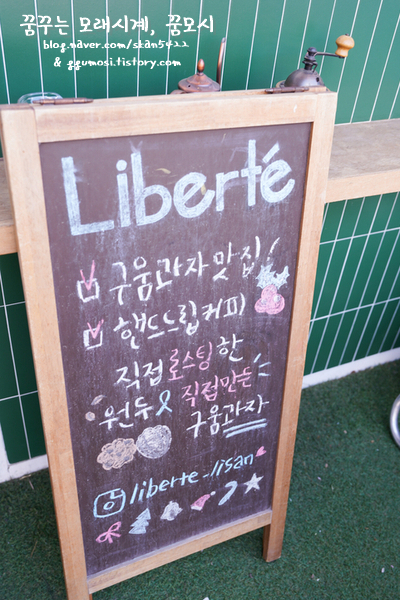 꿈꾸는 모래시계, 꿈모시
blog.naver.com/stan5422
& ggumosi.tistory.com
Liberté
구움과자 맛집!
핸드드립커피
직접 로스팅한
원두 & 직접만든
구움과자
liberte_lisan